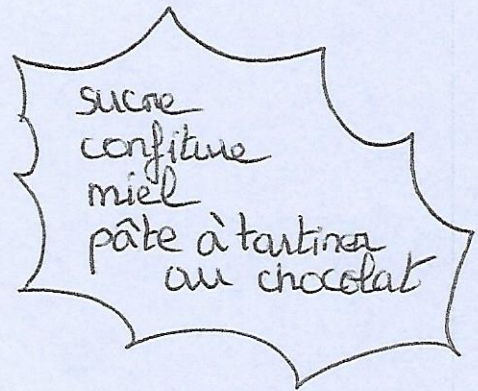 sucre
confiture
miel
pâte à tartiner
au chocolat